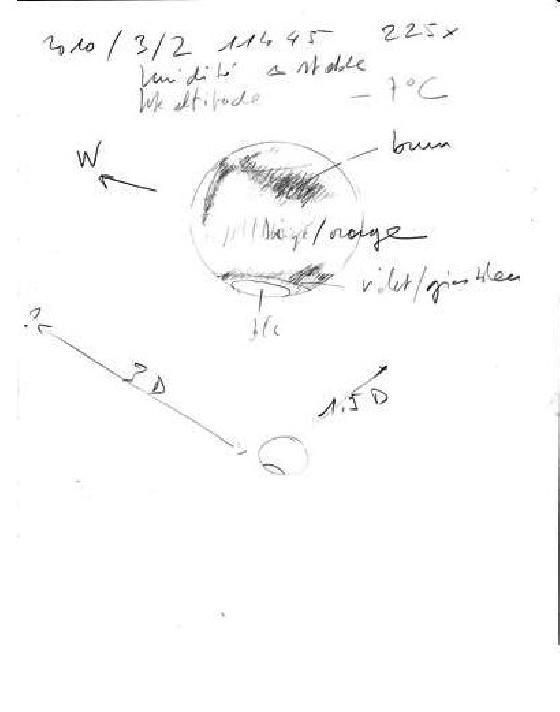 2010/3/2 11h45 225x
humidité stable
Hte altitude - 7°C
W
brun
/orange
violet/gris bleu
?
3 D
1.5 D